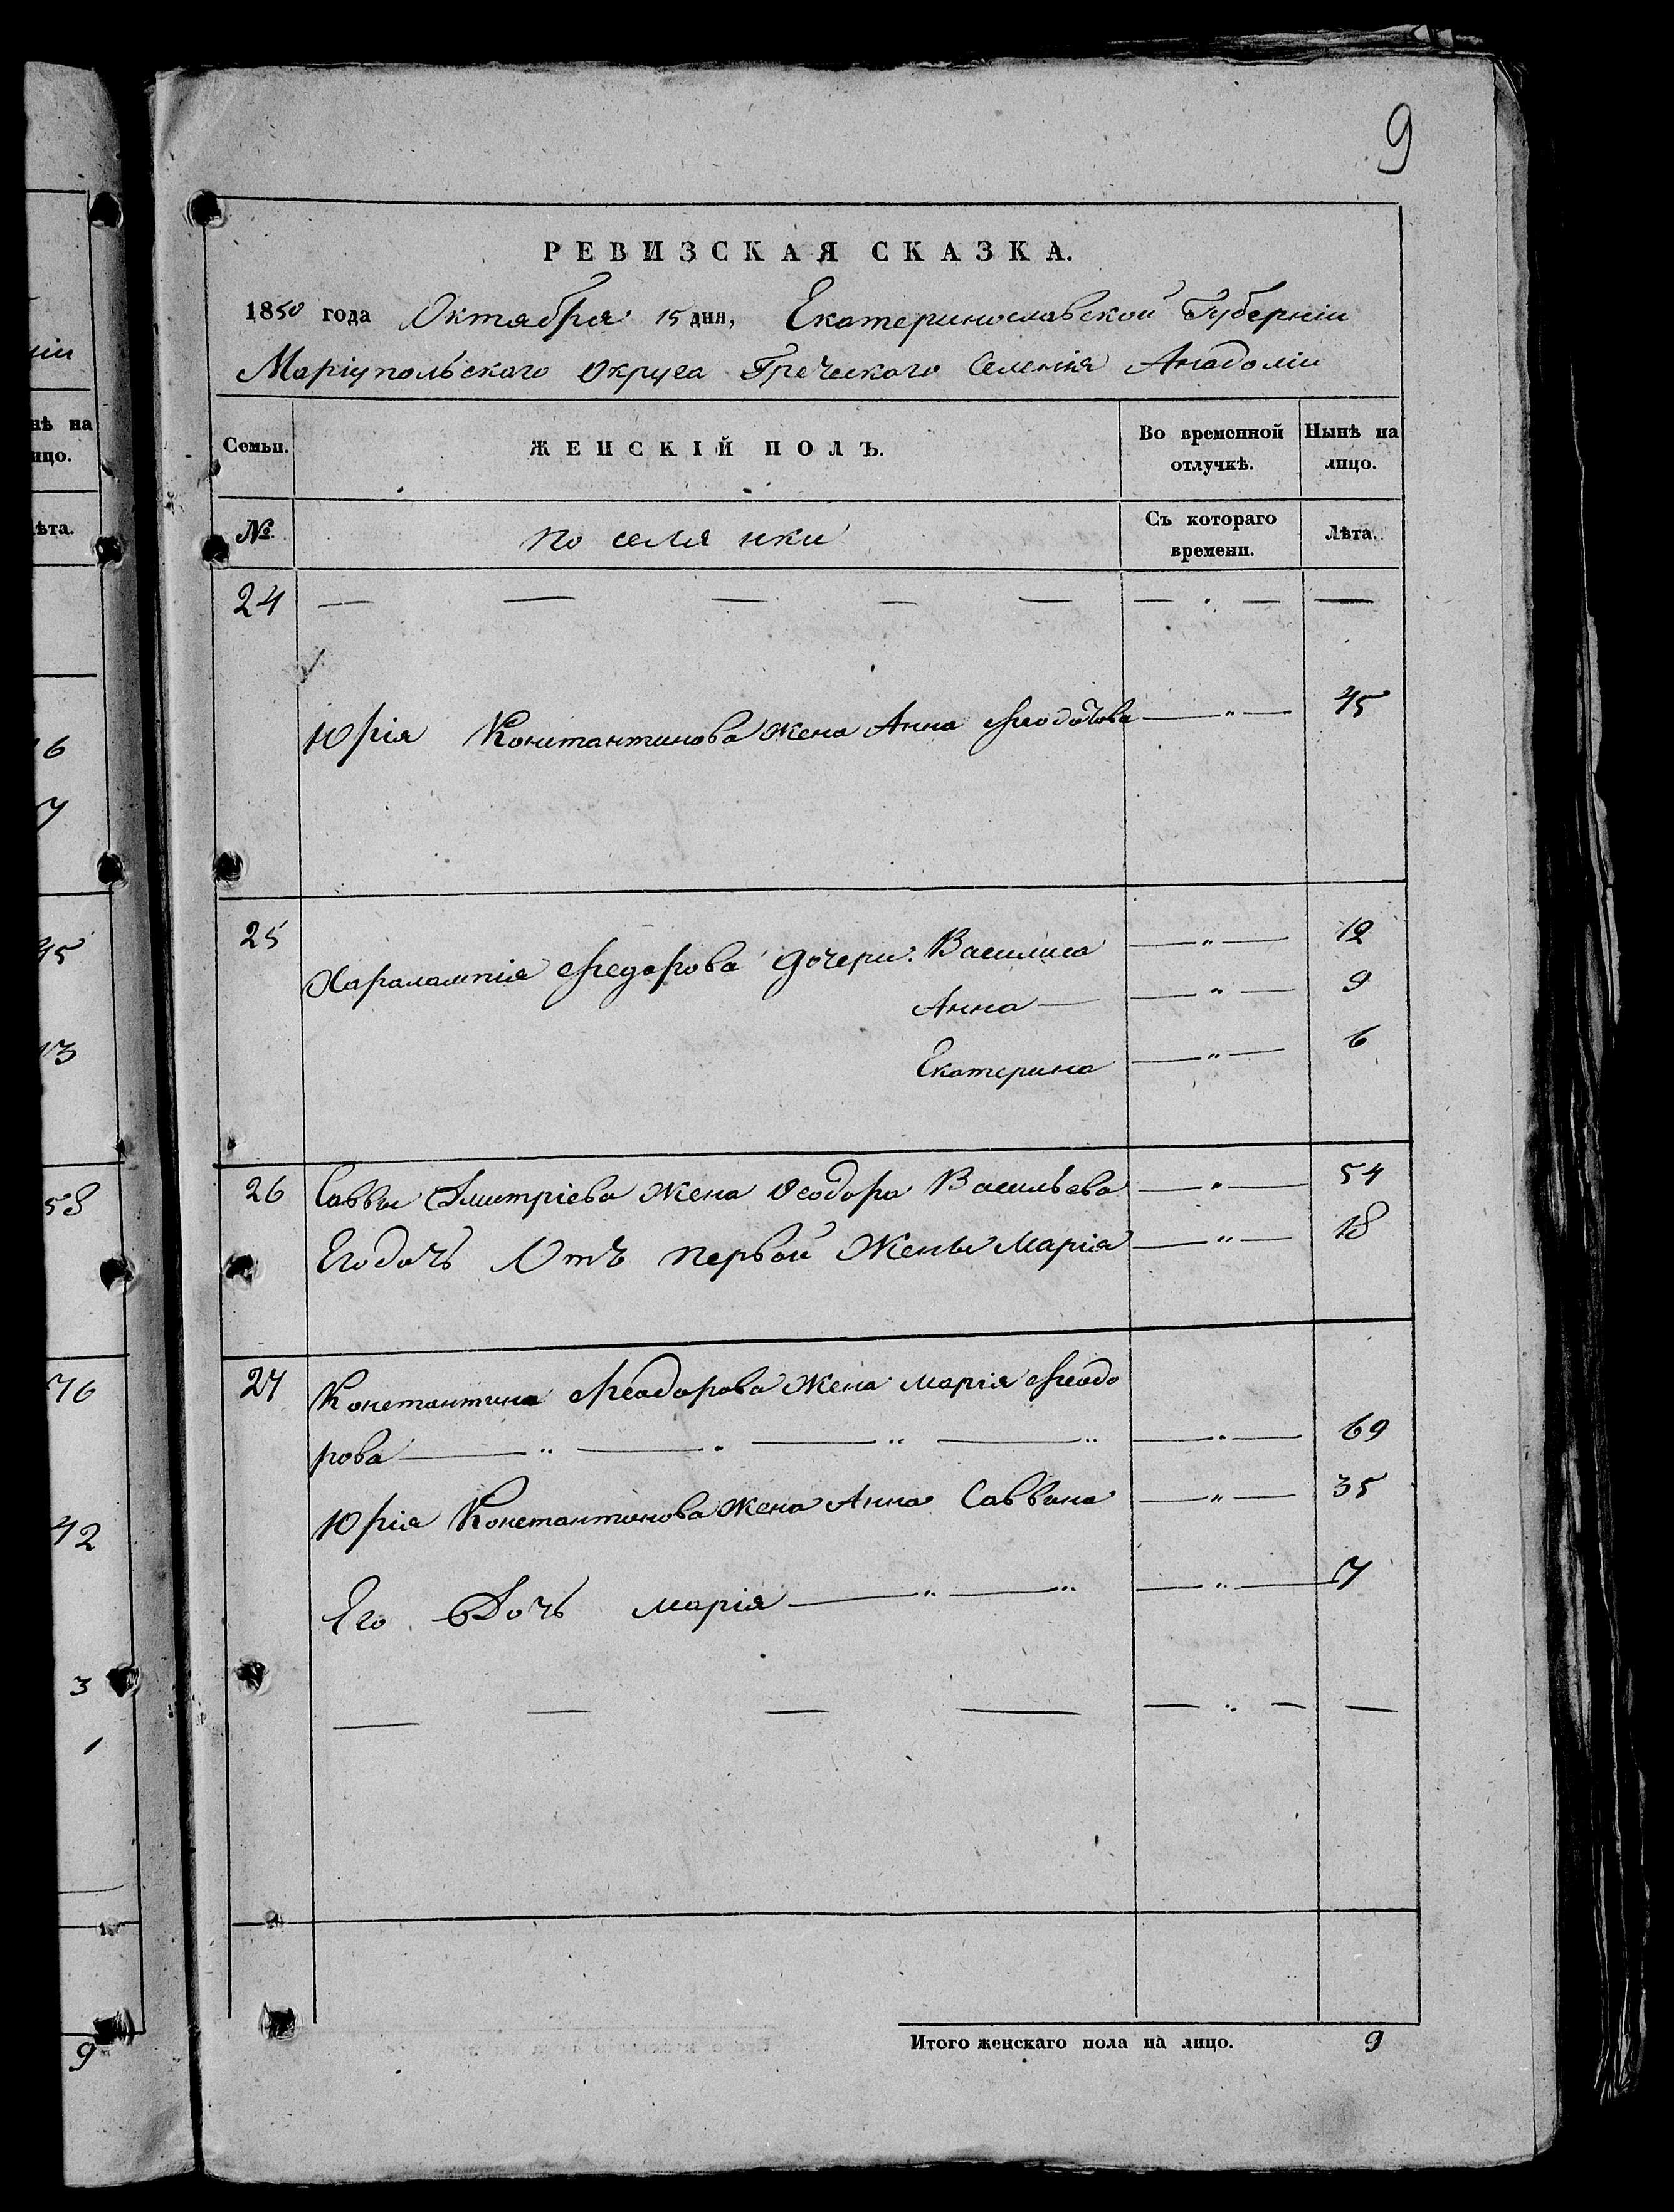 9
РЕВИЗСКАЯ СКАЗКА.
1850 года Октября 15 дня, Екатеринославской Губерніи
Маріупольскаго Округа Греческаго Селенія Анадоліи
Семьи.
ЖЕНСКІЙ ПОЛЪ.
Во временной отлучкѣ.
Нынѣ на лицо.
№
Поселянки
Съ котораго времени.
Лѣта.
24
Юрія Константинова жена Анна 45
25
Харалампія Федорова Дочери: Василиса 12
Анна 9
Екатерина 6
26 Саввы Дмитріева жена Ѳеодора Васильева 54
Его дочь Отъ первой Жены Марія 18
27 Константина Феодорова жена Марія Феодо
рова 69
Юрія Константинова жена Анна Саввина 35
Его Дочь Марія 7
Итого женскаго пола на лицо. 9
ніи
нѣ на
ицо.
ѣта.
6
7
45
13
58
76
42
3
9